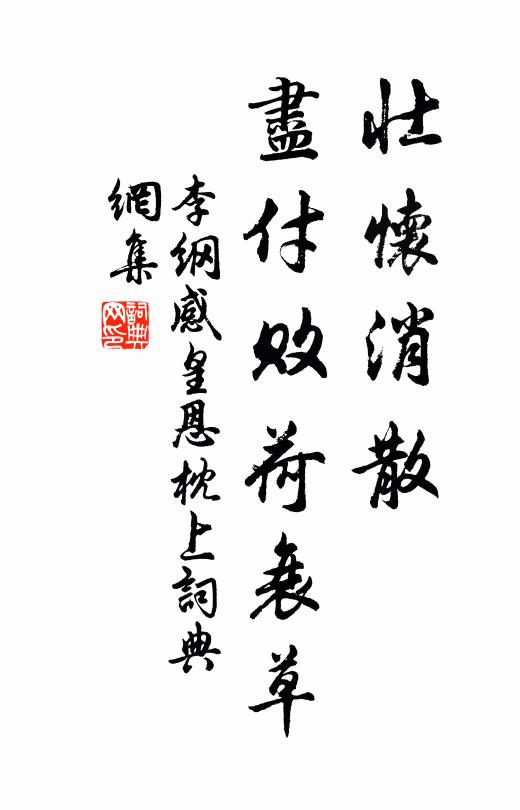 壯懷消散
盡付敗荷衰草
李綱感皇恩枕上詞典
網集
詞典
网印